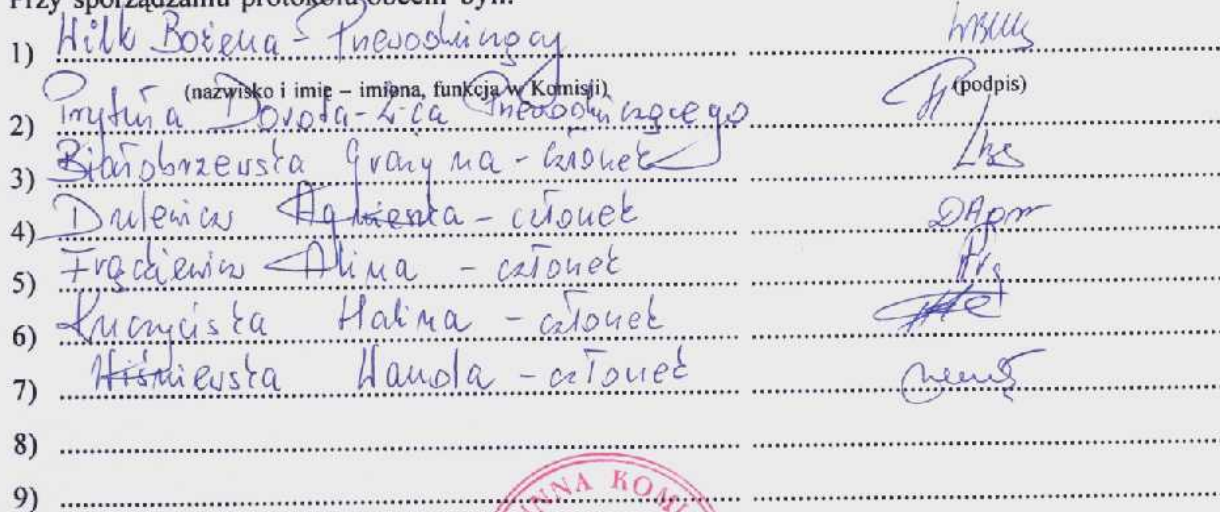 Przy sporządzaniu protokołu obecni byli:
1) Wilk Bożena - Przewodniczący
(nazwisko i imię – imiona, funkcja w Komisji) (podpis)
2) Dorota - Z-ca Przewodniczącego
3) Białobrzewska Grażyna - członek
4) Dulewicz Agnieszka - członek
5) Frąckiewicz Alina - członek
6) Halina - członek
7) Wiśniewska Wanda - członek
8)
9)
INNA KOMI